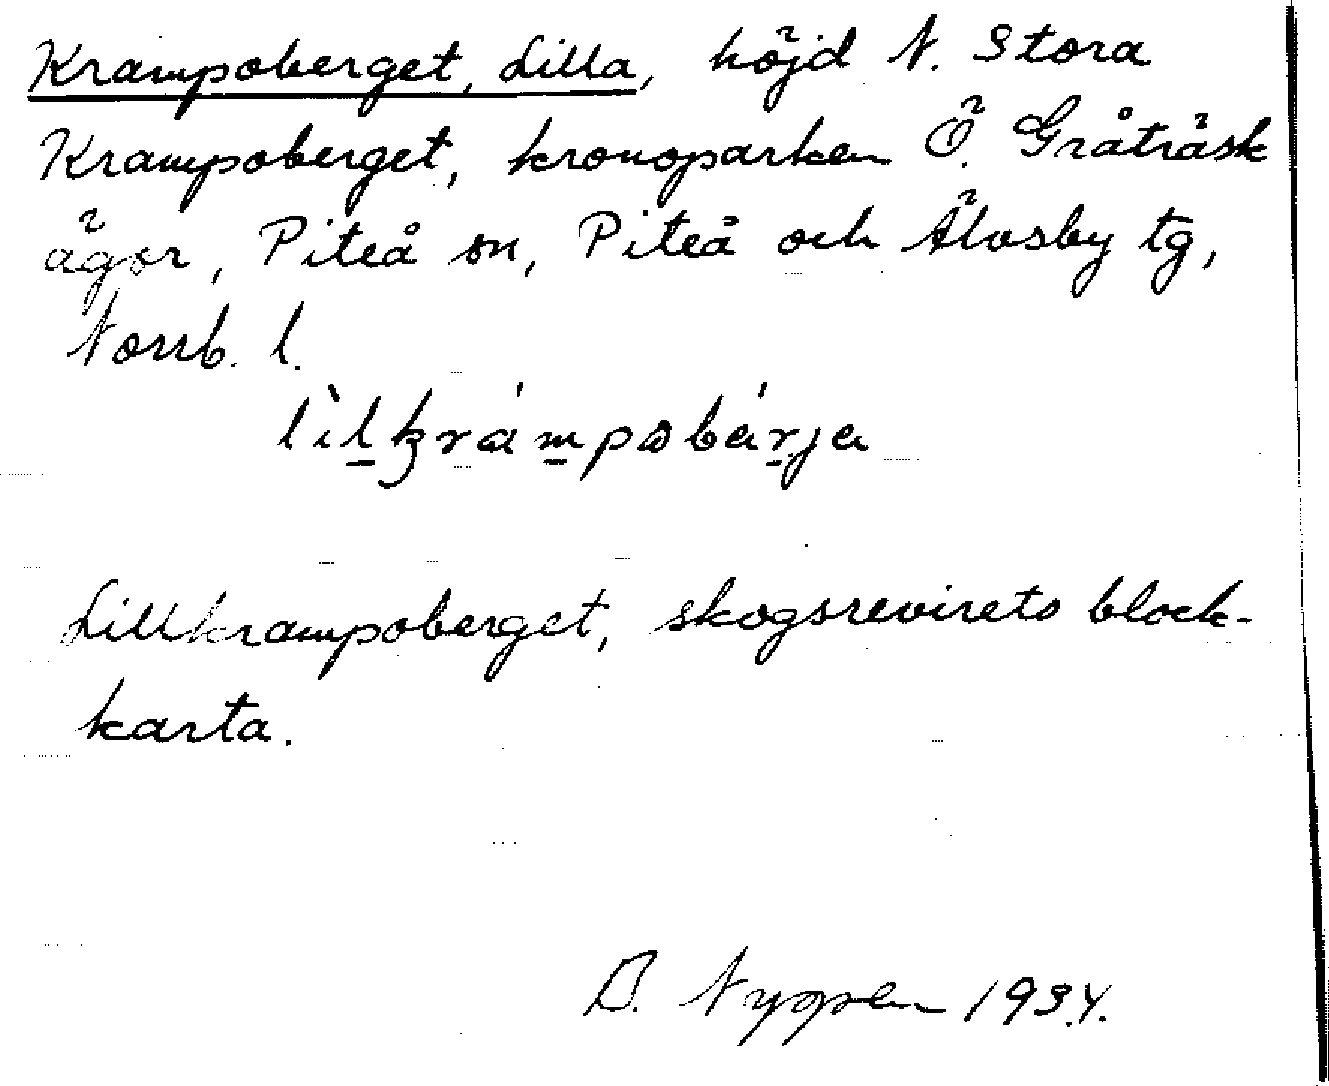 Krampoberget, Lilla, höjd N. Stora
Krampoberget, kronoparken Ö. Gråträsk
ägor, Piteå sn, Piteå och Älvsby tg,
Norrb. l.
lìlkrámpobárja
Lillkrampoberget, skogsrevirets block-
karta.
B. Nygren 1934.